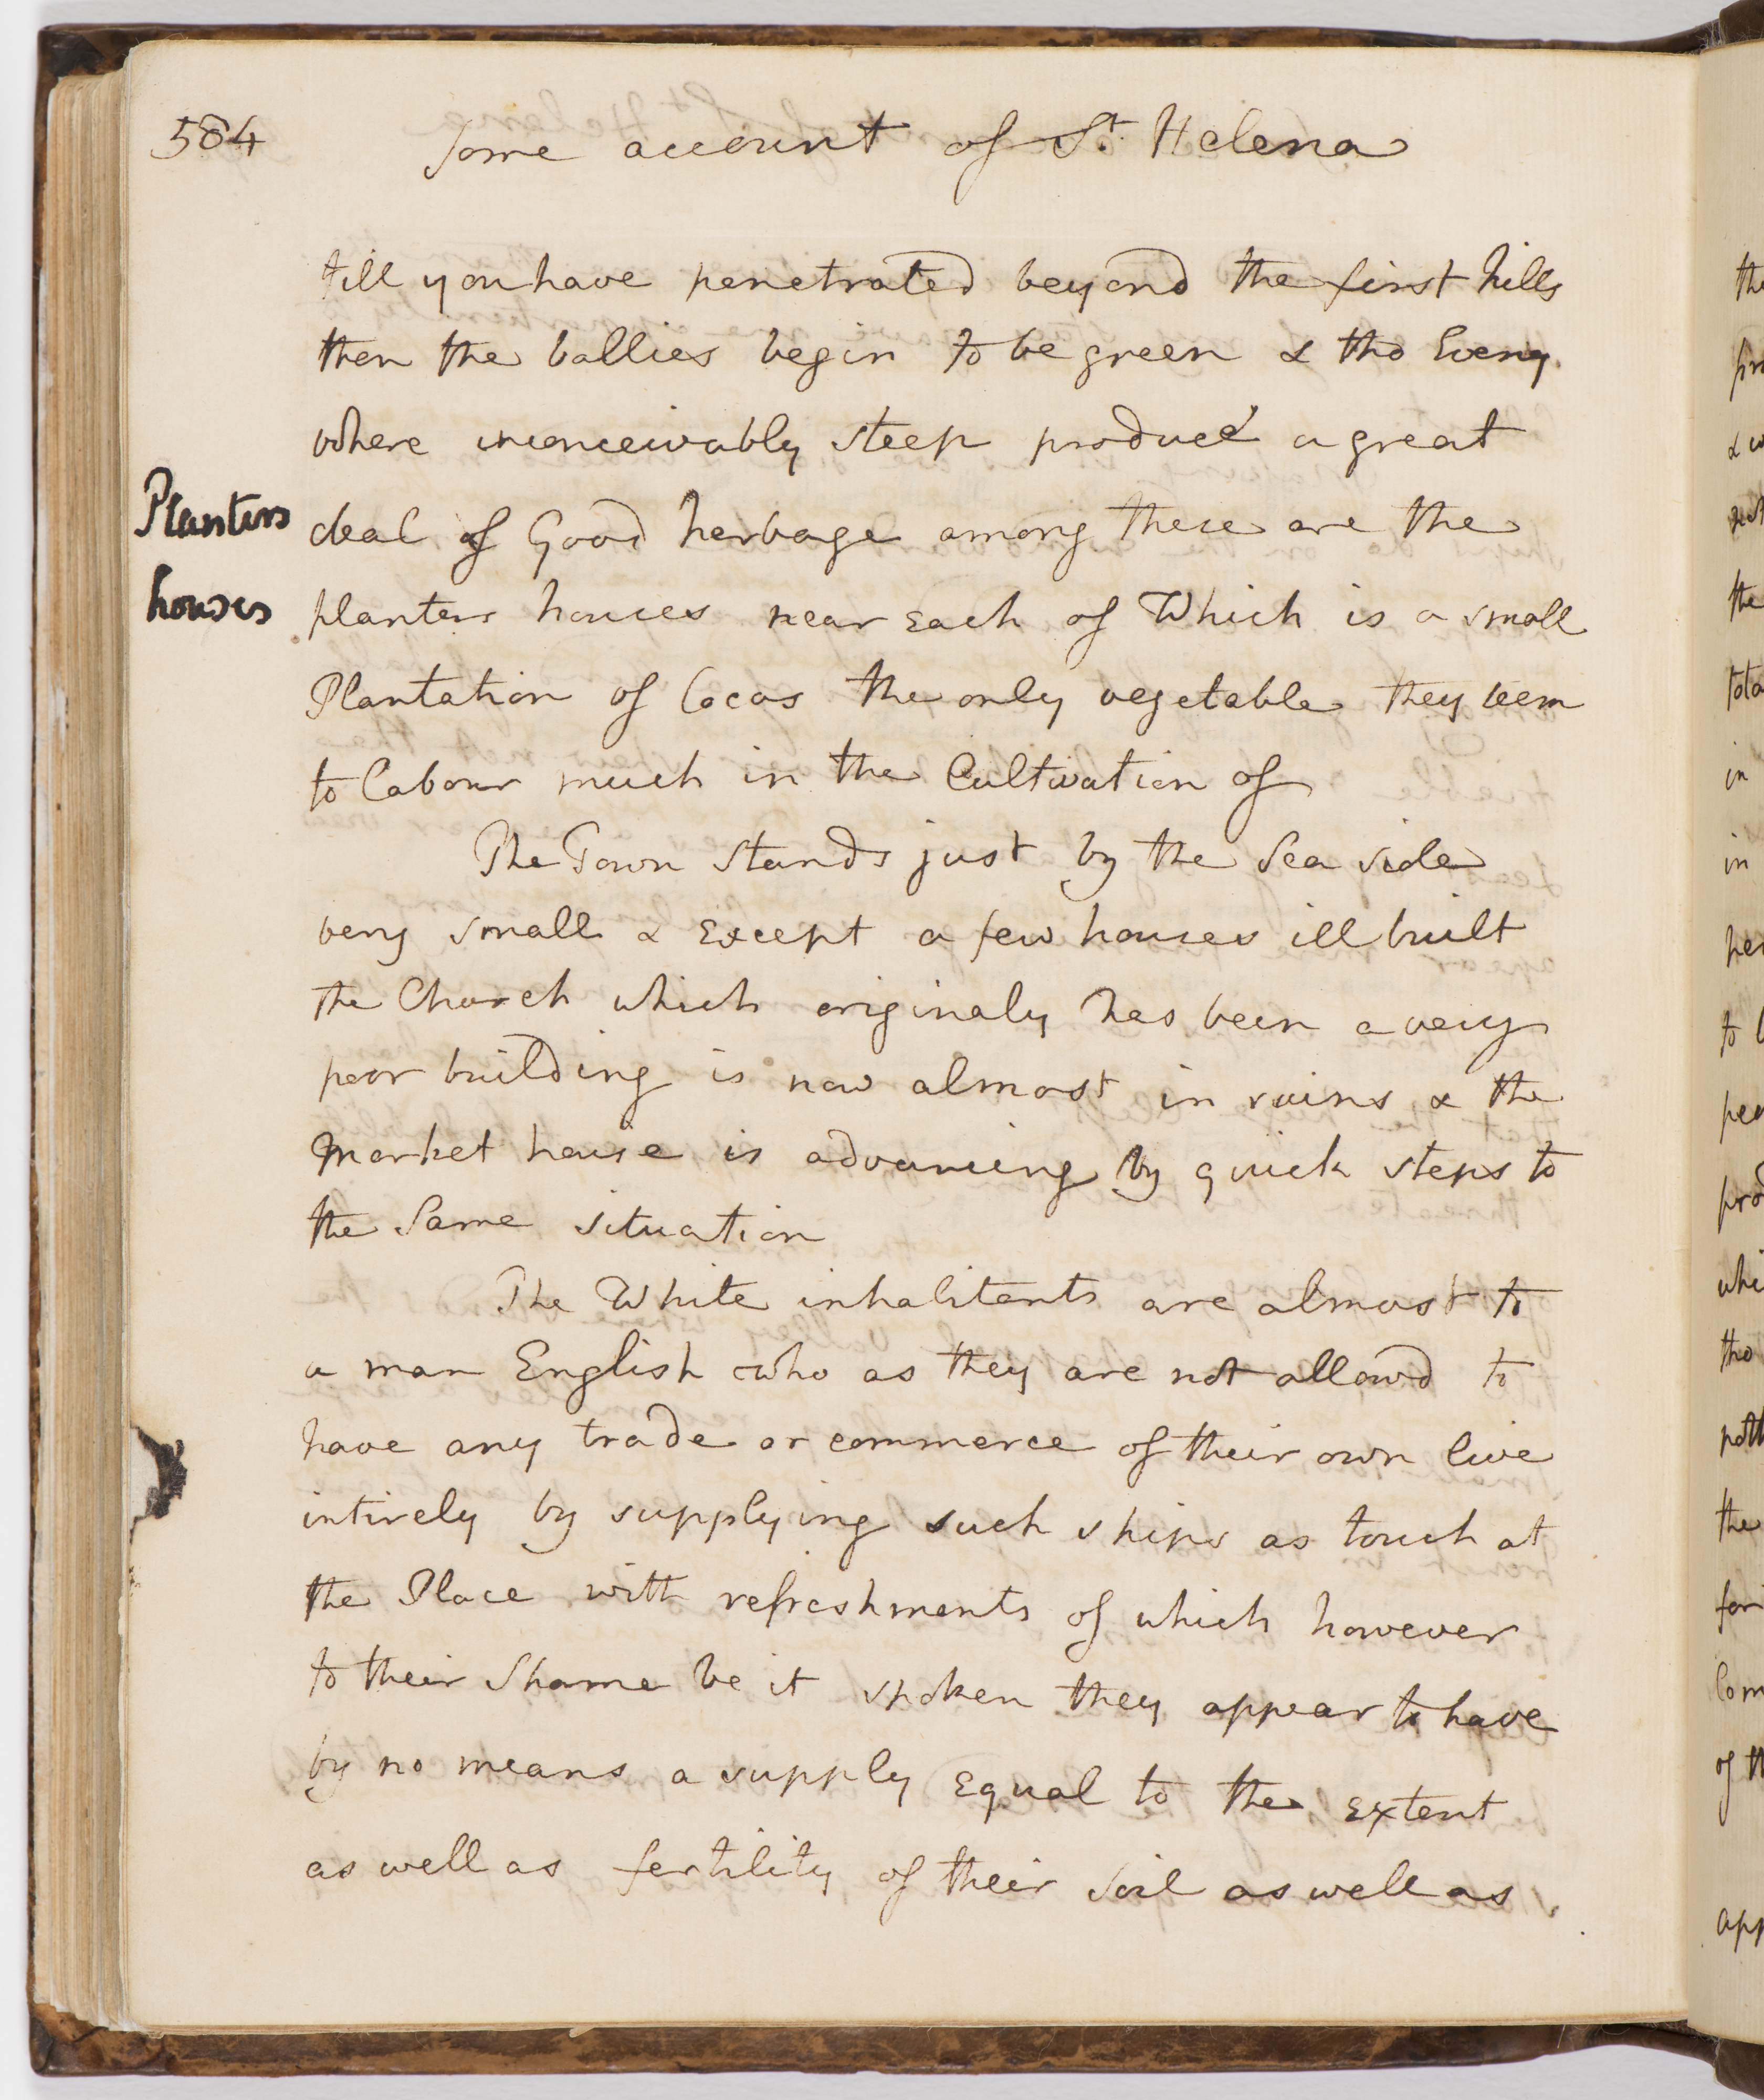 584
Some account of St. Helena
till you have penetrated beyond the first hills
then the vallies begin to be green & tho Every
where inconceivably steep produce a great
Planters
deal of Good herbage among these are the
houses
planters houses near Each of Which is a small
Plantation of Cocos the only vegetable they seem
to labour much in the Cultivation of
The Town Stands just by the Sea side
very small & Except a few houses ill built
the Church which originaly has been a very
poor building is now almost in ruins & the
Market house is advancing by quick steps to
the Same situation
The White inhabitants are almost to
a man English who as they are not allowd to
have any trade or commerce of their own live
intirely by supplying such ships as touch at
the Place with refreshments of which however
to their Shame be it spoken they appear to have
by no means a supply Equal to the Extent
as well as fertility of their Soil as well as